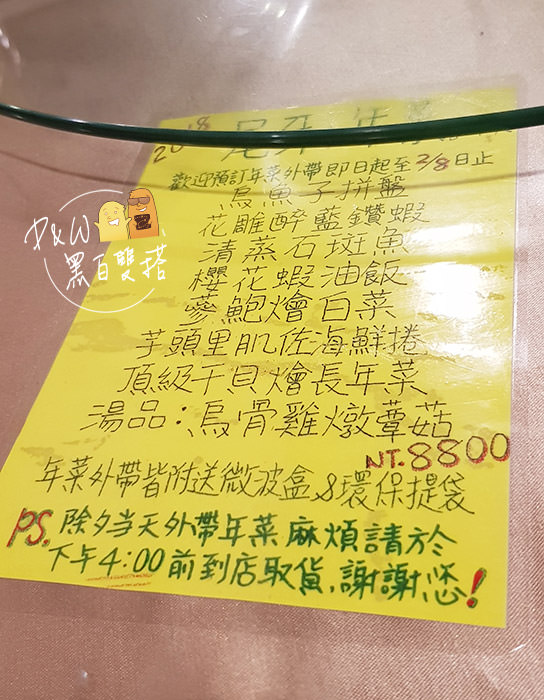 2018 尾牙 年菜
歡迎預訂年菜外帶即日起至2/8日止
烏魚子拼盤
花雕醉藍鑽蝦
清蒸石斑魚
櫻花蝦油飯
蔘鮑燴白菜
芋頭里肌佐海鮮捲
頂級干貝燴長年菜
湯品：烏骨雞燉蕈菇
NT.8800
年菜外帶皆附送微波盒&環保提袋
PS. 除夕当天外帶年菜麻煩請於
下午4:00前到店取貨，謝謝您！
P&W
黑白雙搭